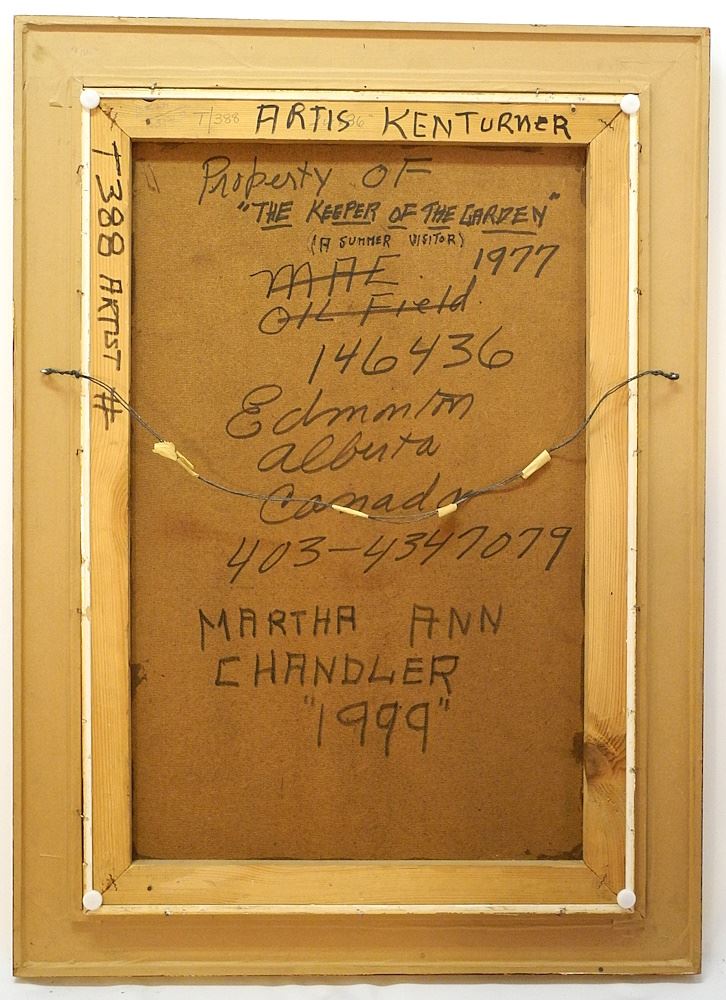 T/388
ARTIS KENTURNER
T388 ARTIST #
Property OF
"THE KEEPER OF THE GARDEN"
(A SUMMER VISITOR)
1977
MAE
OIL Field
146436
Edmonton
Alberta
Canada
403-4347079
MARTHA ANN
CHANDLER
"1999"